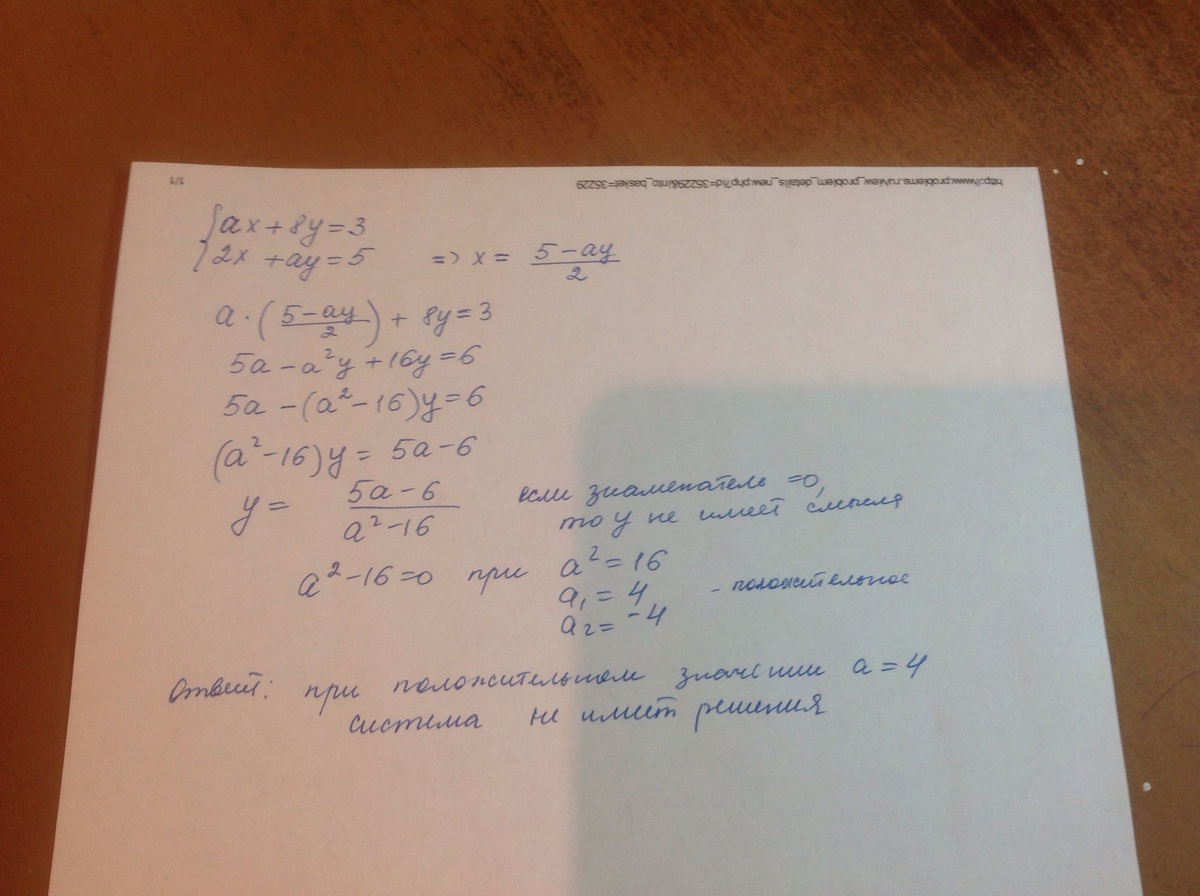 http://www.problems.ru/view_problem_details_new.php?id=35229&into_basket=35229
1/1
{ax + 8y = 3
2x + ay = 5 => x = (5 - ay)/2
a · ((5 - ay)/2) + 8y = 3
5a - a²y + 16y = 6
5a - (a² - 16)y = 6
(a² - 16)y = 5a - 6
y = (5a - 6)/(a² - 16) если знаменатель = 0,
то y не имеет смысля
a² - 16 = 0 при a² = 16
a₁ = 4 - положительное
a₂ = -4
Ответ: при положительном значении a = 4
система не имеет решения